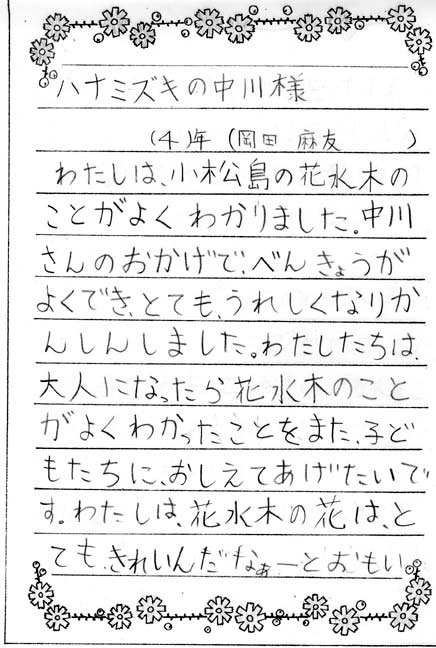 ハナミズキの中川様
(4)年(岡田 麻友 )
わたしは、小松島の花水木の
ことがよくわかりました。中川
さんのおかげで、べんきょうが
よくでき、とても、うれしくなりか
んしんしました。わたしたちは、
大人になったら花水木のこと
がよくわかったことを、また、子ど
もたちに、おしえてあげたいで
す。わたしは、花水木の花は、と
ても、きれいんだなぁーとおもい